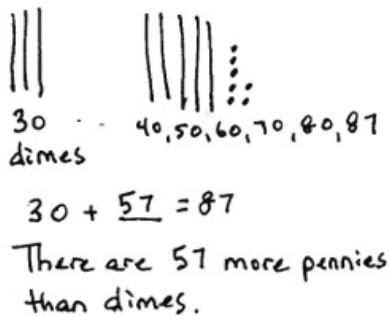 30 .. 40, 50, 60, 70, 80, 87
dimes
30 + 57 = 87
There are 57 more pennies
than dimes.